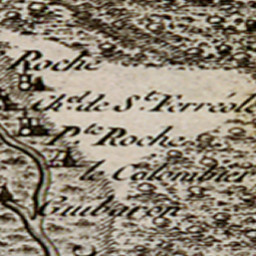 Roche
Ch.el de S.t Ferréol
P.te Roche
le Colombier
Guabaren